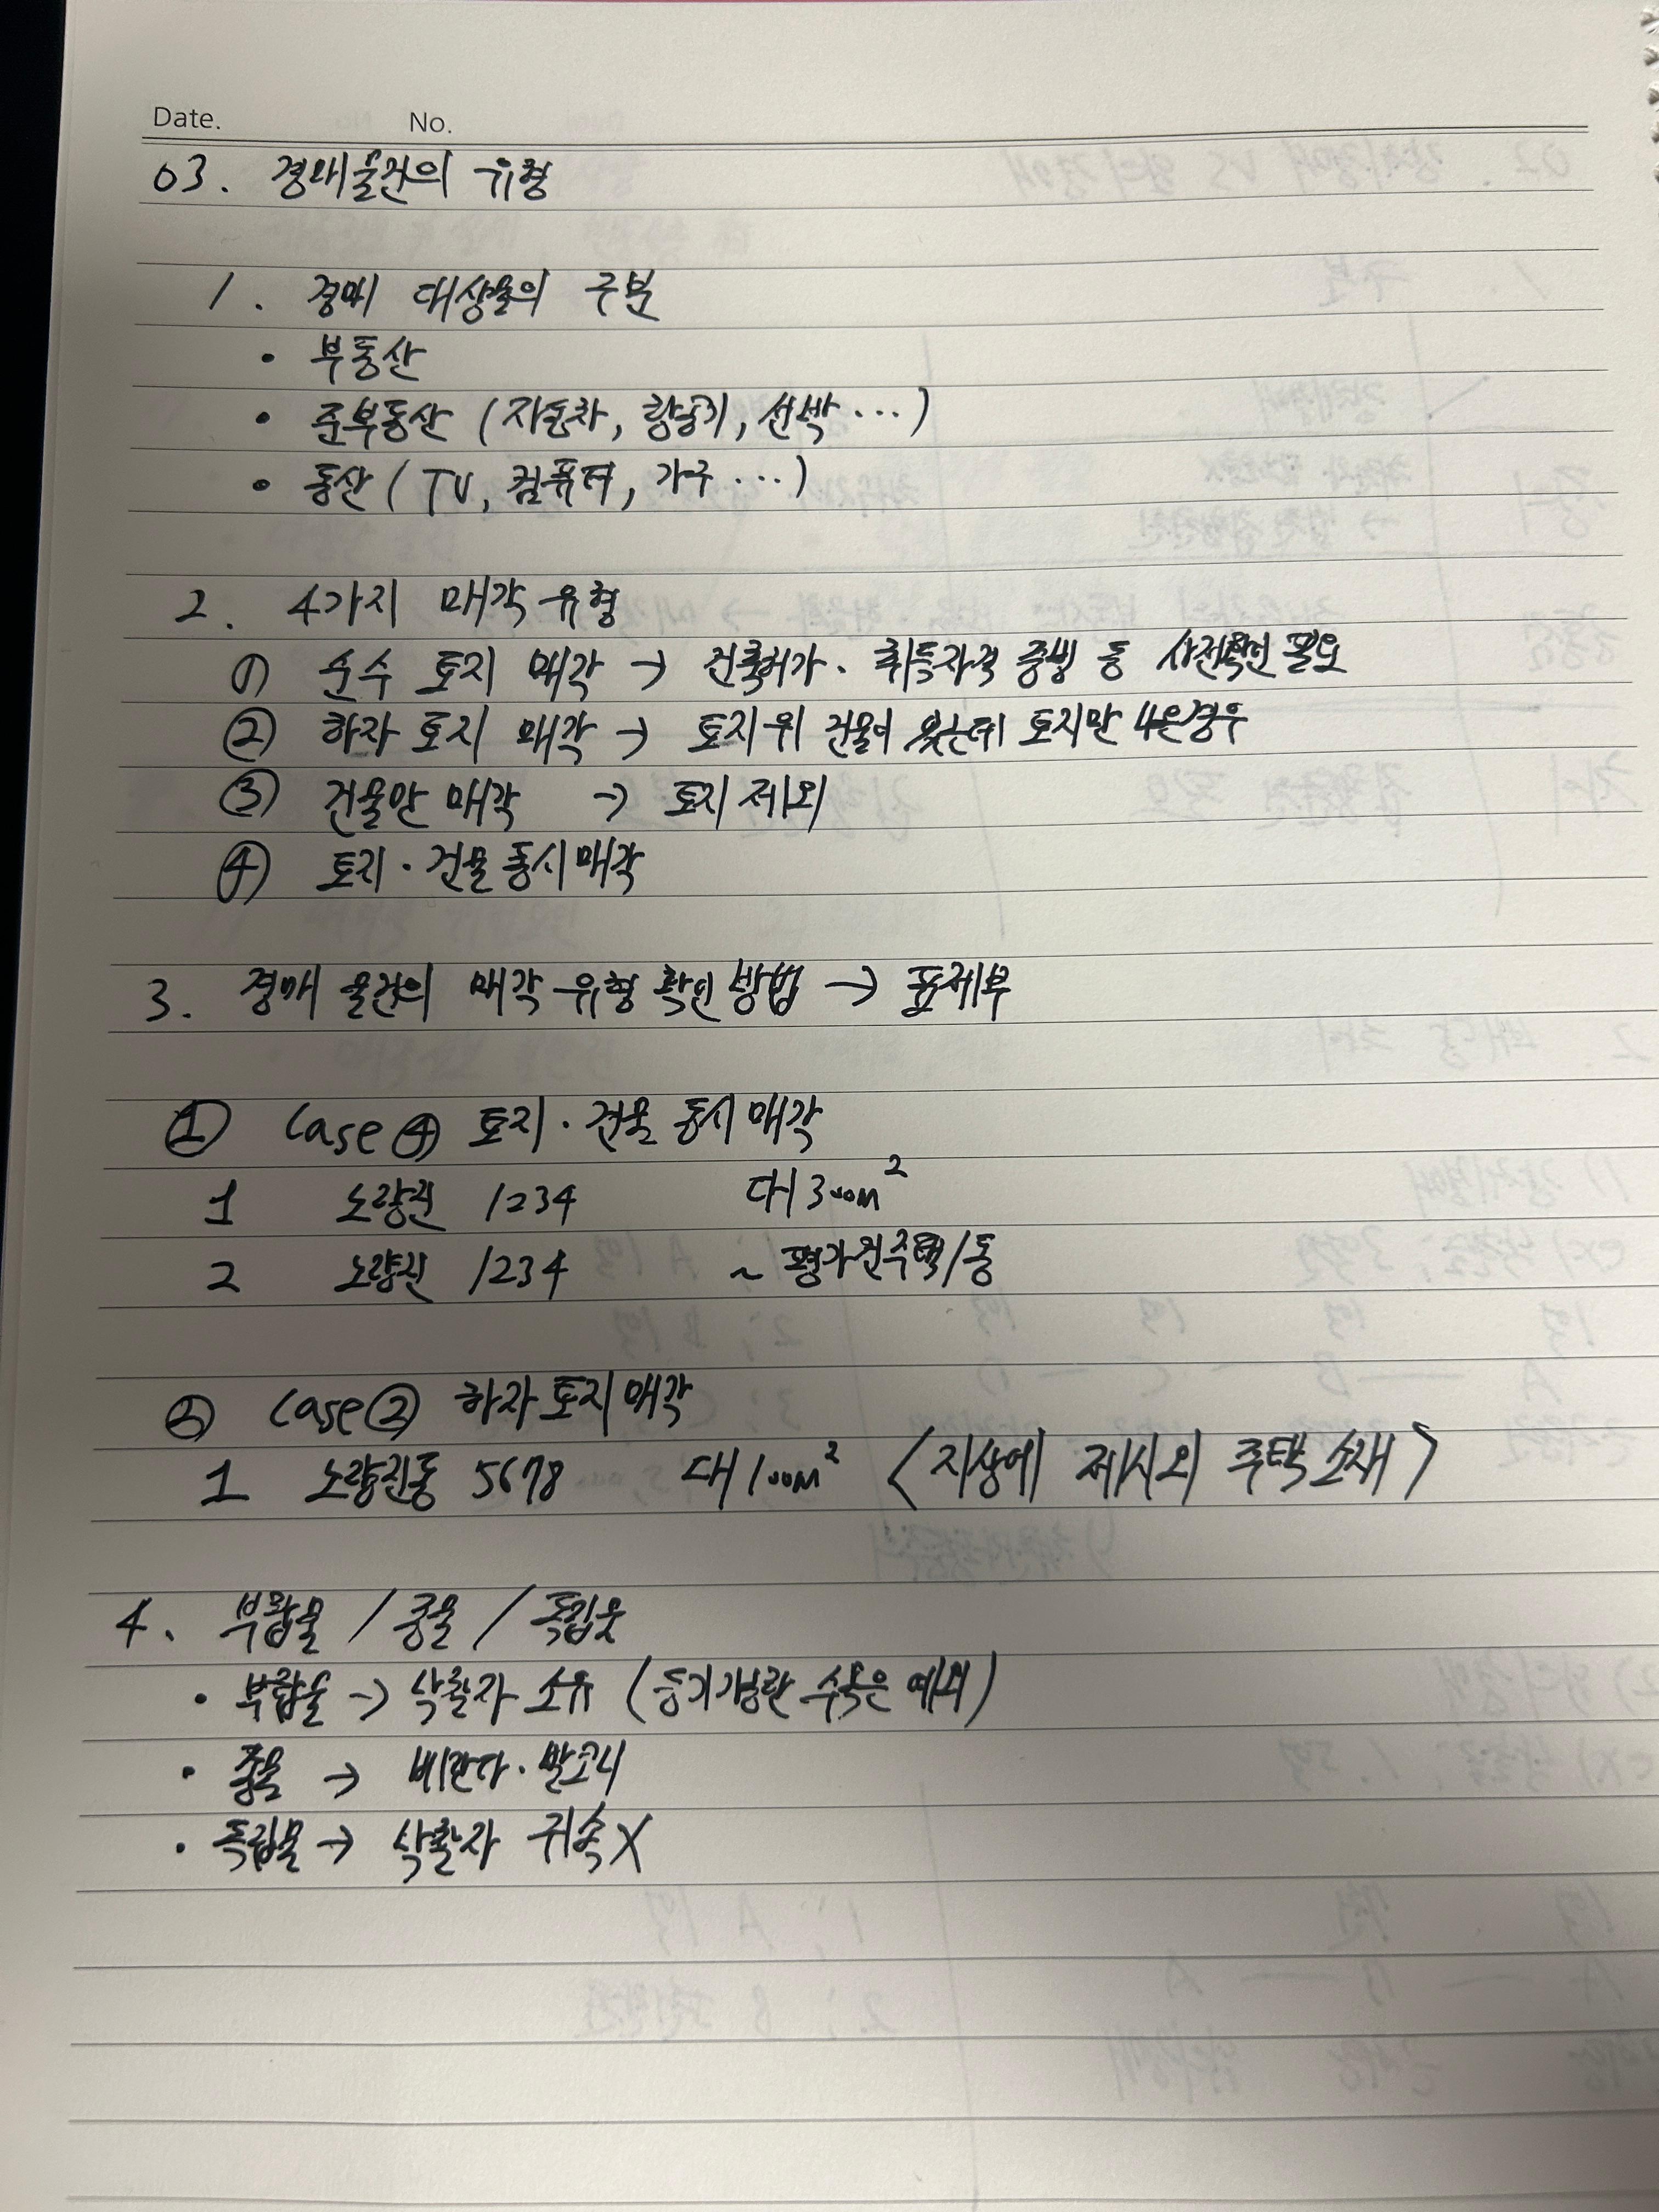 Date. No.
03. 경매물건의 유형
1. 경매 대상물의 구분
• 부동산
• 준부동산 (자동차, 항공기, 선박 ...)
• 동산 (TV, 컴퓨터, 가구 ...)
2. 4가지 매각 유형
① 순수 토지 매각 → 건축허가 · 취득자격 증빙 등 사전확인 필요
② 하자 토지 매각 → 토지 위 건물이 있는데 토지만 나온 경우
③ 건물만 매각 → 토지 제외
④ 토지 · 건물 동시 매각
3. 경매 물건의 매각 유형 확인 방법 → 표제부
① Case ④ 토지 · 건물 동시 매각
1 노량진 1234 대 300m²
2 노량진 1234 ~ 평가건 주택 1동
② Case ② 하자 토지 매각
1 노량진동 5678 대 100m² <지상에 제시외 주택 소재>
4. 부합물 / 종물 / 독립물
• 부합물 → 낙찰자 소유 (등기 수목은 예외)
• 종물 → 보일러
• 독립물 → 낙찰자 귀속 X